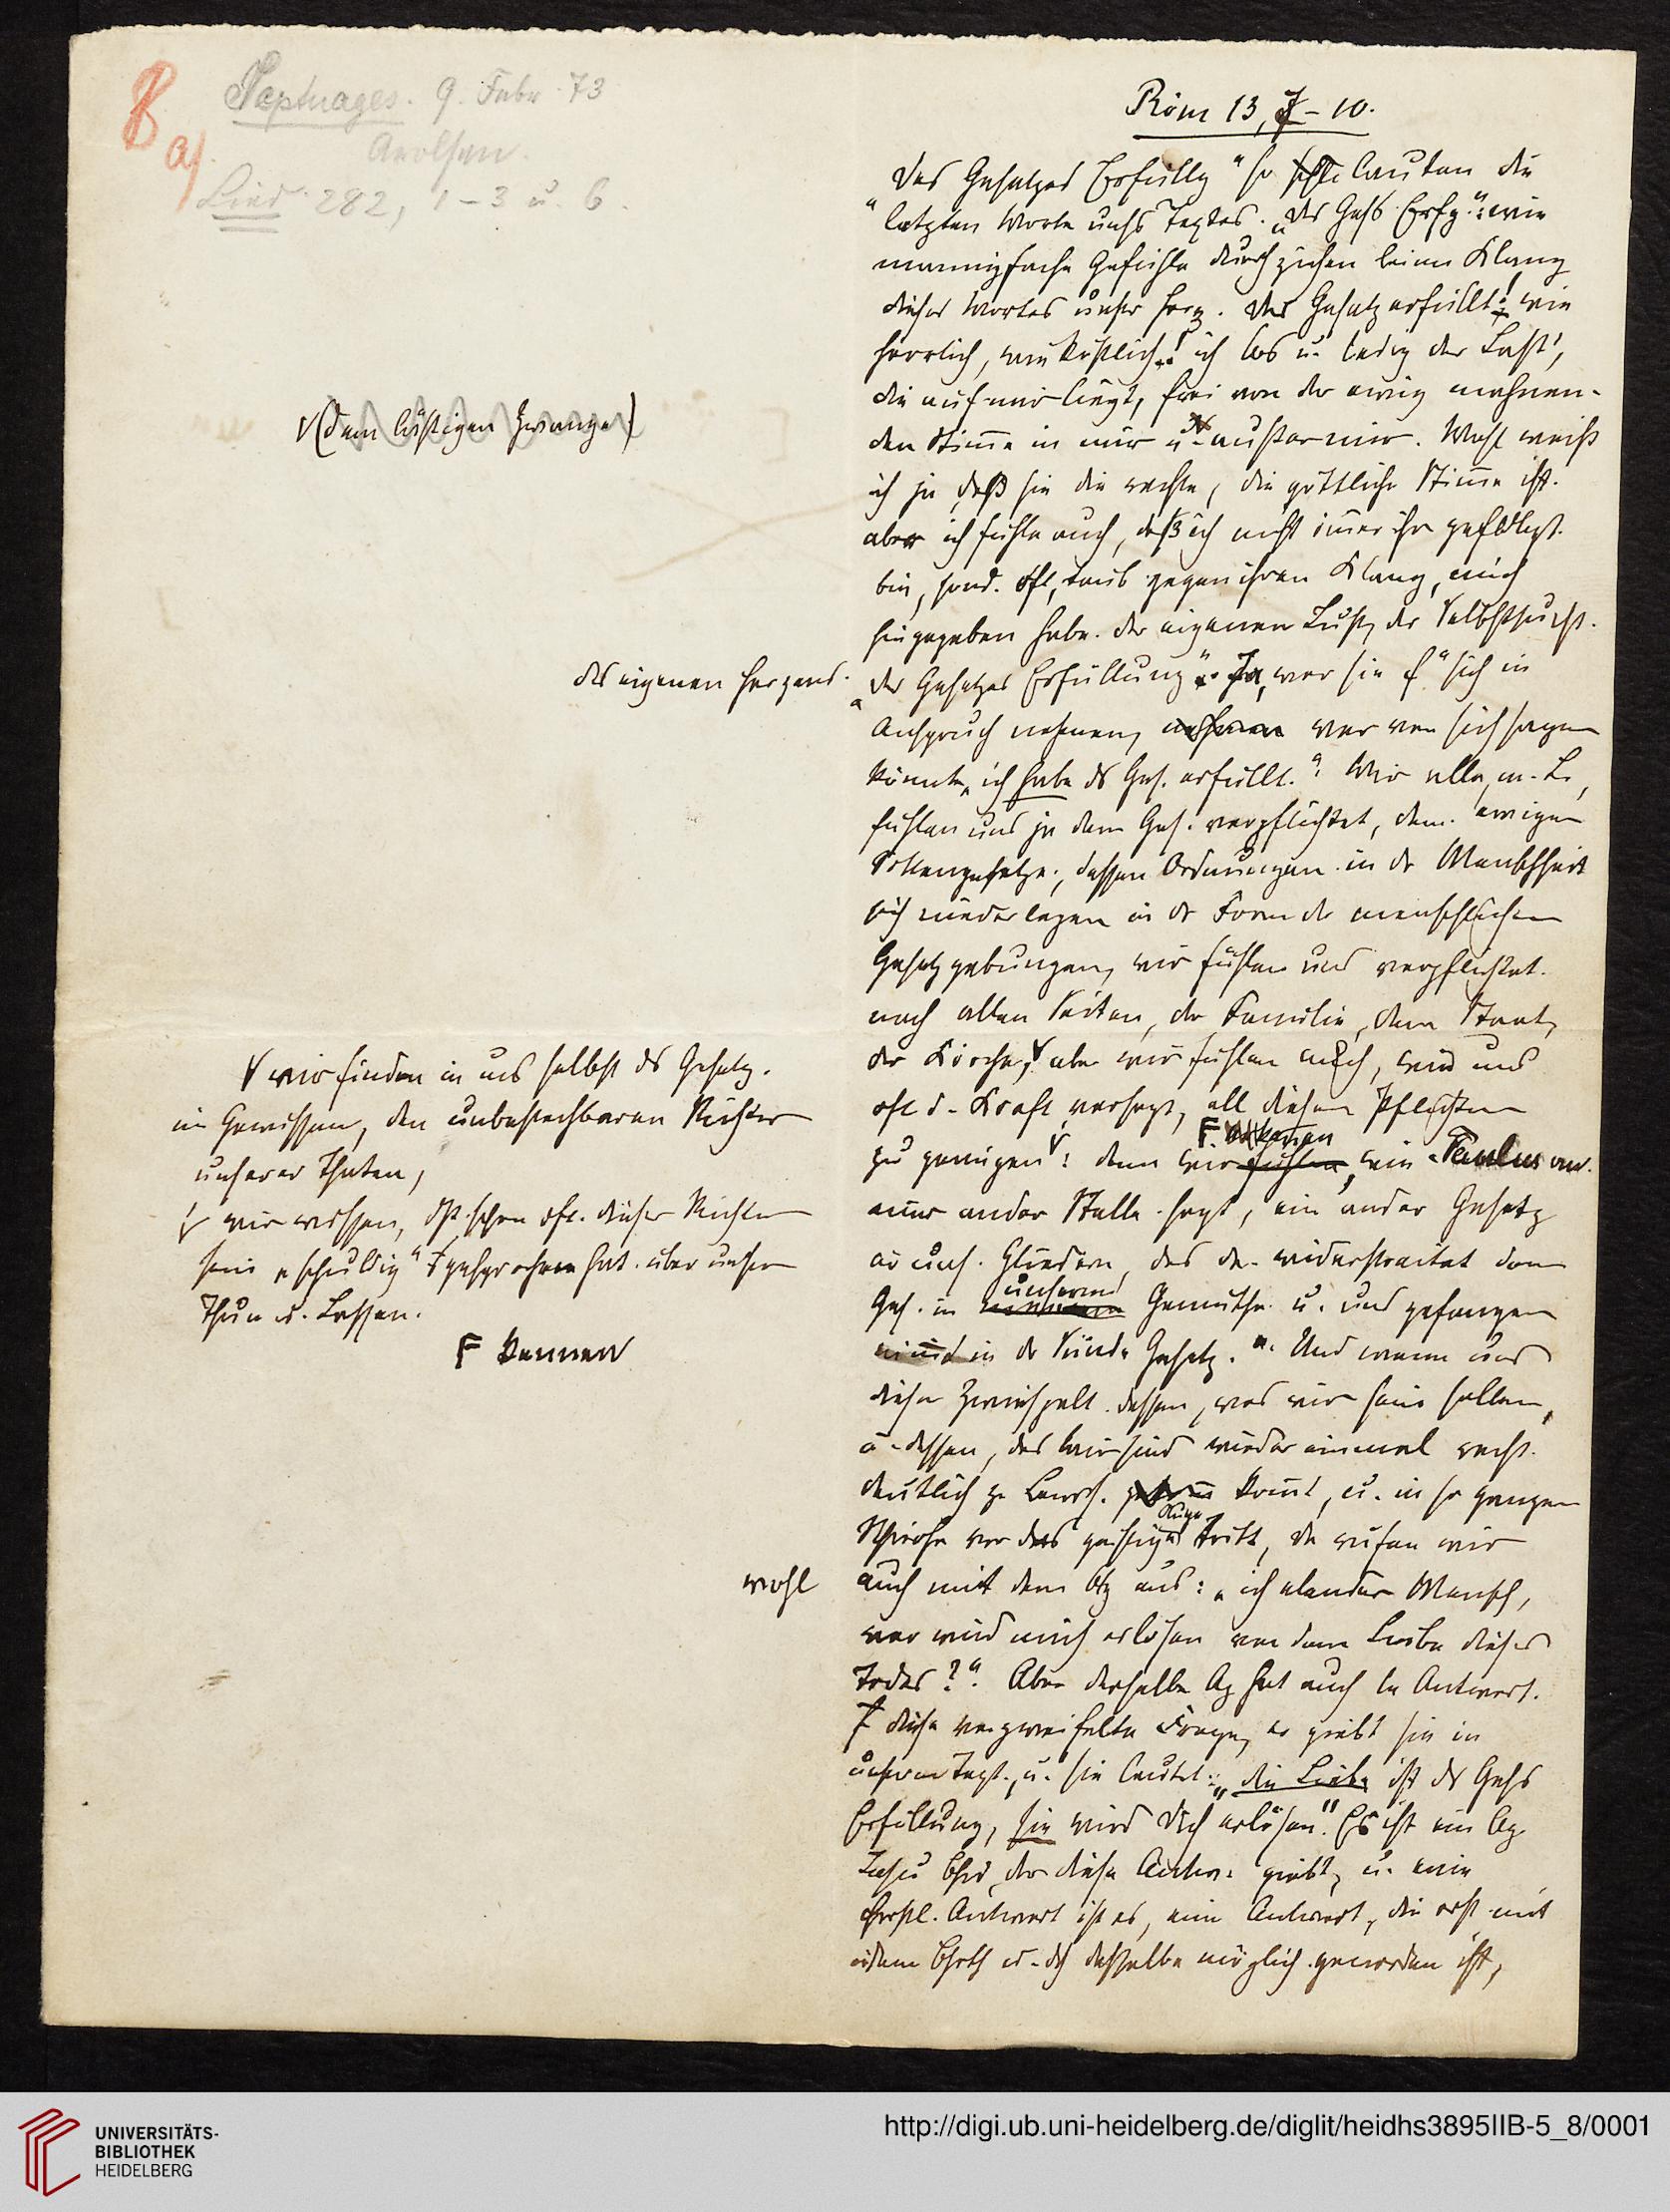 B
a)
Septuages. 9. Febr. 73
Arolsen.
Lied 282, 1-3 u. 6.
Röm 13, 7-10.
des Gesetzes Erfüllg" so lauten die
"letzten Worte unsrs Textes. "Des Gess Erfg.": wie
mannigfache Gefühle durchziehen beim Klang
dieses Wortes unser Herz. Das Gesetz erfüllt! wie
herrlich, wie köstlich! ich los u. ledig der Last,
die auf mir liegt, frei von der ewig mahnen-
√(dem lästigen Zwange)
den Stimme in mir u. außer mir. Wohl weiß
ich ja daß sie die rechte, die göttliche Stimme ist.
aber ich fühle auch, daß ich nicht immer ihr gefolgt
bin, sond. oft, taub gegen ihren Klang, mich
hingegeben habe der eigenen Lust, der Selbstsucht.
des eigenen Herzens.
"des Gesetzes Erfüllung". Ja, wer sie f. sich in
Anspruch nehmen, wer von sich sagen
könnte, ich habe ds Ges. erfüllt." Wir alle, m. L.,
fühlen uns ja dem Ges. verpflichtet, dem ewigen
Sittengesetze, dessen Ordnungen in dr Menschheit
sich niederlegen in dr Form dr menschlichen
Gesetzgebungen, wir fühlen uns verpflichtet
nach allen Seiten, der Familie, dem Staat,
der Kirche, √ aber wir fühlen auch, wie uns
oft d. Kraft versagt, all diesen Pflichten
zu genügen √: denn wir fühlen, wie Paulus an
einer ander Stelle sagt, ein ander Gesetz
in uns. Gliedern, das da widerstreitet dem
Ges. in unserem Gemüthe u. uns gefangen
nimmt in dr Sünde Gesetz.". Und wenn uns
dieser Zwiespalt dessen, was wir sein sollen,
u. dessen, das wir sind wieder einmal recht
deutlich z. Bewßts. kommt, u. in sr ganzen
Schärfe vor das geistige Auge tritt, da rufen wir
wohl
auch mit dem Ap aus: "ich elender Mensch,
wer wird mich erlösen von dem Leibe dieses
Todes?". Aber derselbe Ap hat auch die Antwort
f. diese verzweifelte Frage, er giebt sie in
unserem Text, u. sie lautet: "die Liebe ist ds Gess
Erfüllung, sie wird dich erlösen". Es ist ein Ap.
Jesu Chr, der diese Antw. giebt, u. eine
christl. Antwort ist es, eine Antwort, die erst mit
dem Chrth u. dch dasselbe möglich geworden ist,
√ wir finden in uns selbst ds Gesetz
im Gewissen, den unbestechbaren Richter
unserer Thaten,
√ wir wissen, daß schon oft dieser Richter
sein "schuldig" gesprochen hat über unser
Thun u. Lassen.
F kennen
UNIVERSITÄTS-
BIBLIOTHEK
HEIDELBERG
http://digi.ub.uni-heidelberg.de/diglit/heidhs3895IIB-5_8/0001